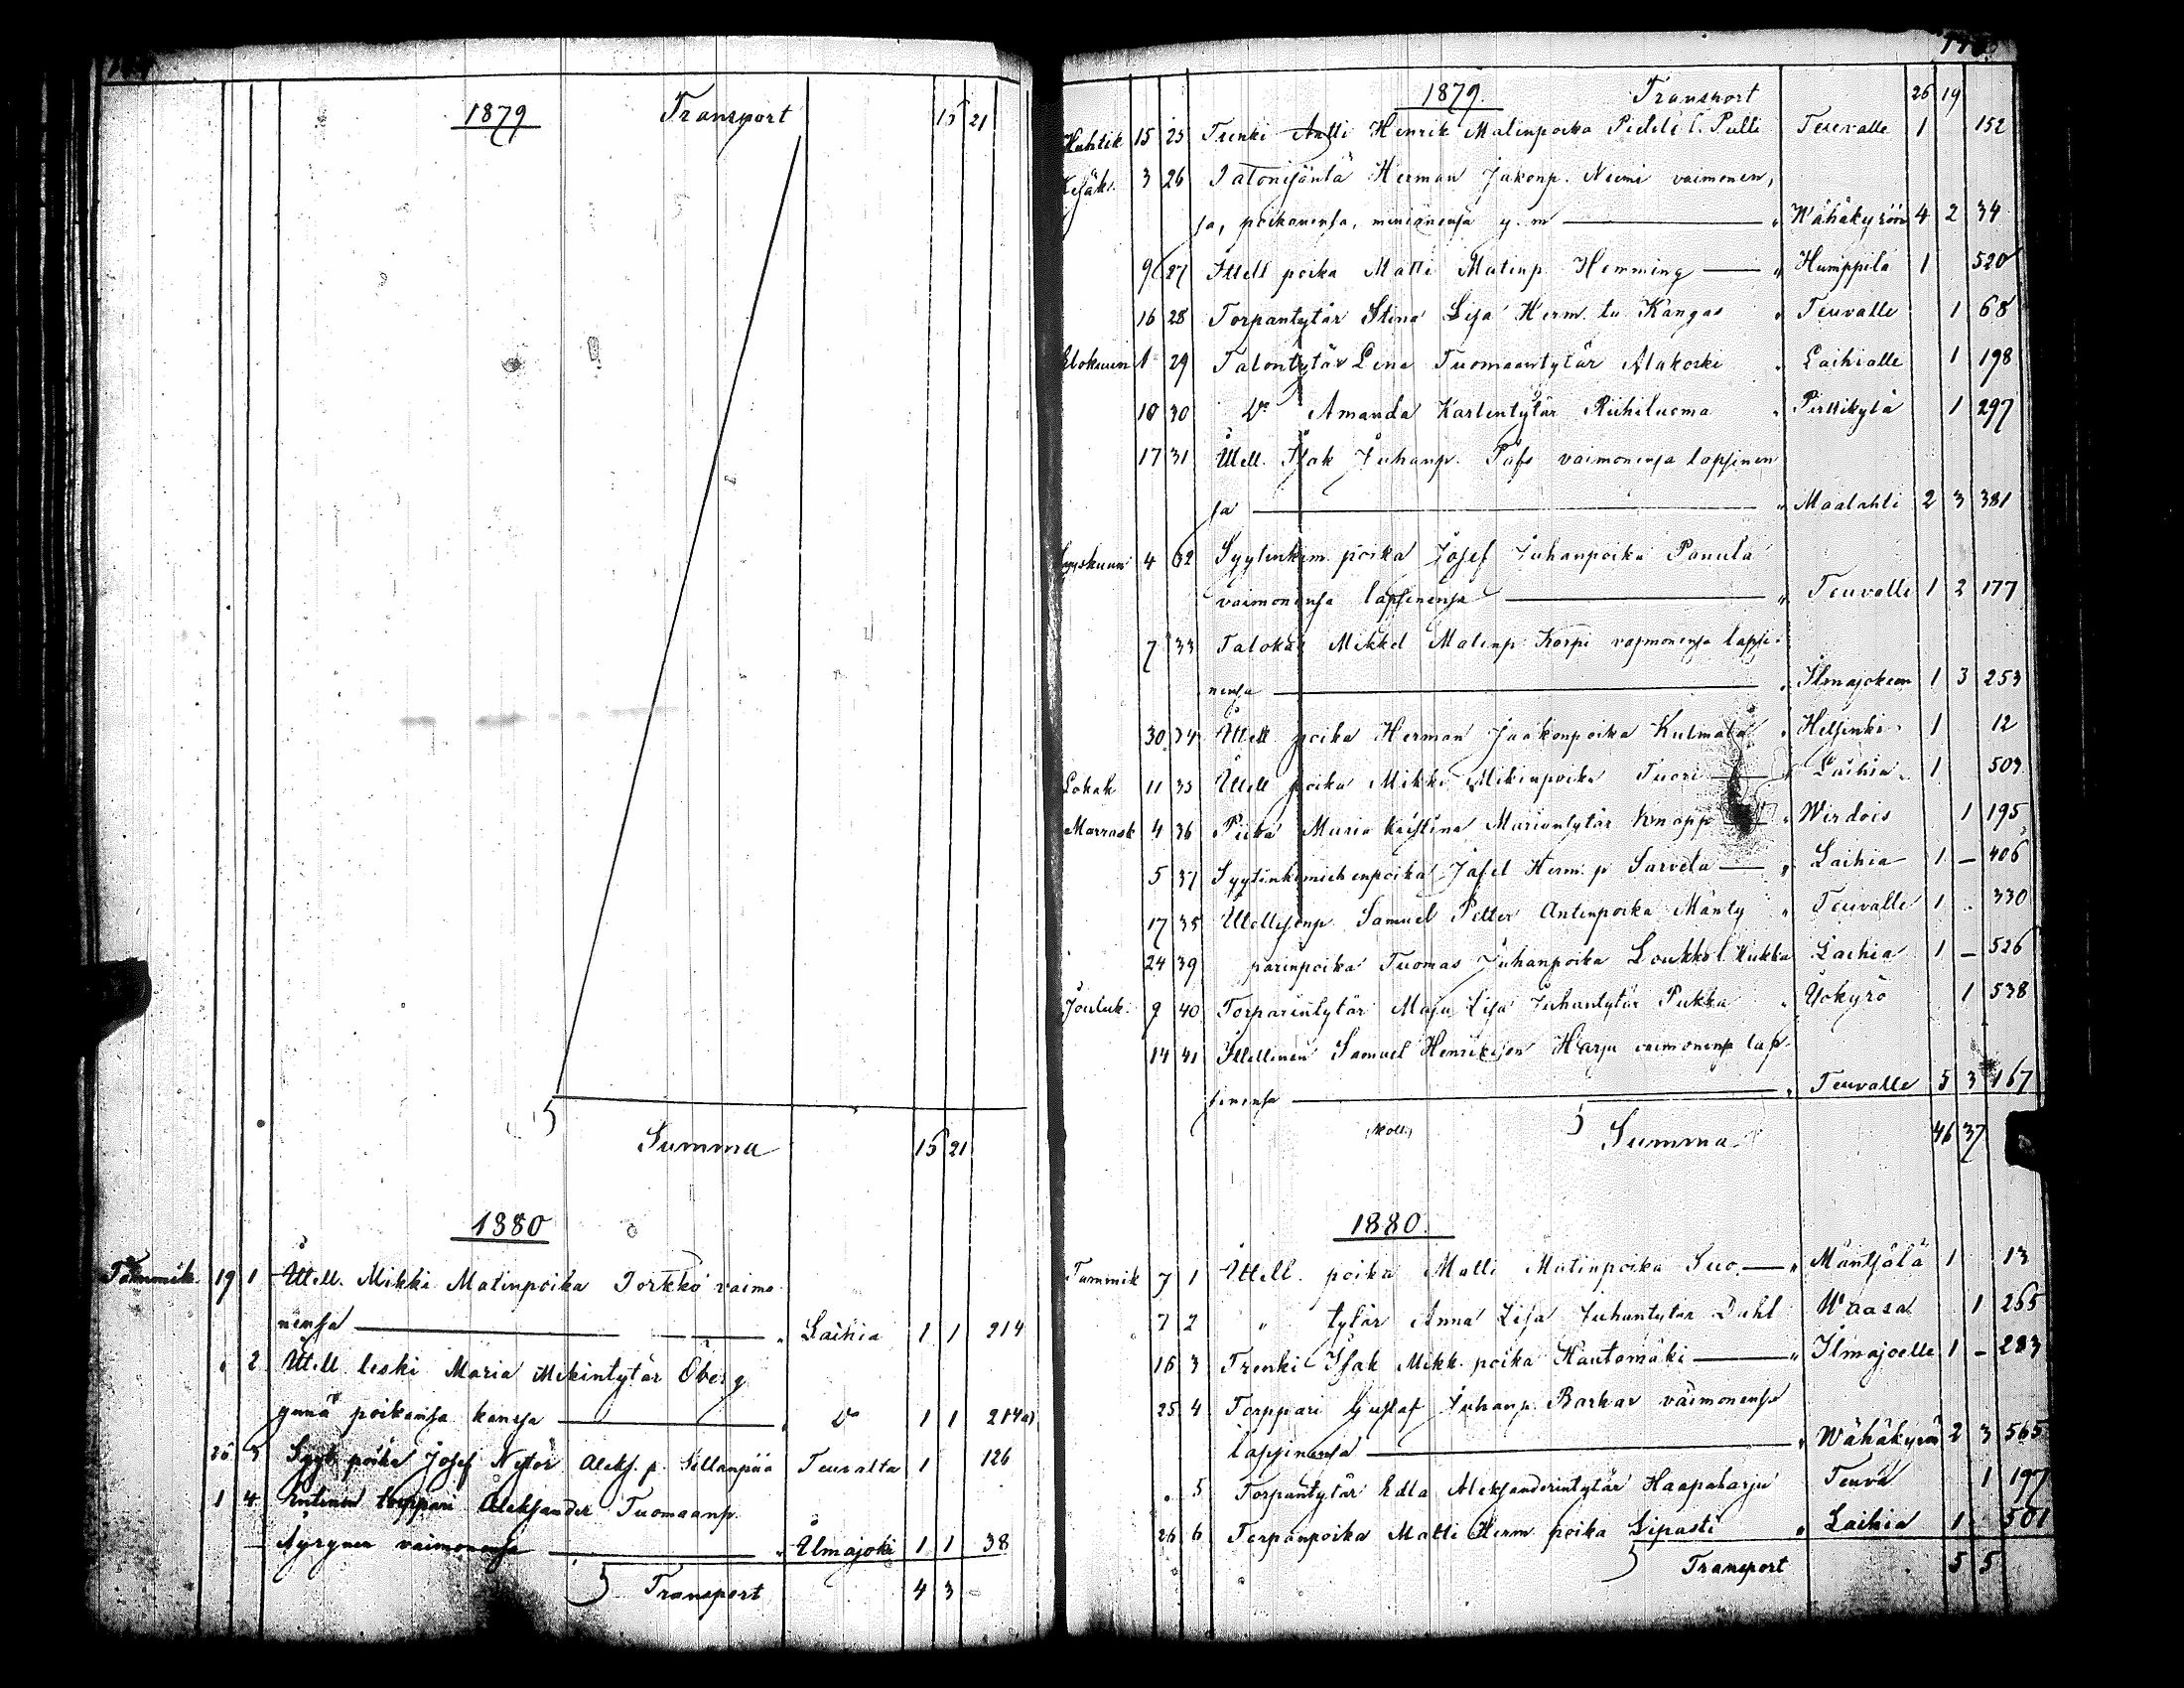 1879 Transport 15 21
Summa 15 21
1880
Tammik. 19 1 Itsell. Mikki Matinpoika Torkko vaimo
nensa " Laihia 1 1 214
" 2 Itsell. leski Maria Mikintytär Öberg
ynnä poikansa kanssa " Do 1 1 214
25 3 Syyt. poika Josef Nestor Aleks. p. Sillanpää Teuvalta 1 126
1 4 Entinen torppari Aleksander Tuomaanp.
Äyrynen vaimonensa " Ilmajoki 1 1 38
Transport 4 3
1879. Transport 26 19
Huhtik 15 25 Trenki Antti Henrik Matinpoika l. Pulli Teuvalle 1 152
Kesäk. 3 26 Talonisäntä Herman Jakonp. Niemi vaimonen,
sa, poikanensa, miniänensä y. m " Wähäkyrön 4 2 34
9 27 Itsell poika Matti Matinp Hemming " Humppila 1 520
16 28 Torpantytär Stina Lisa Herm. ty. Kangas " Teuvalle 1 68
Elokuun 1 29 Talontytär Lena Tuomaantytär Alakoski " Laihialle 1 198
10 30 Do Amanda Karlentytär Riihiluoma " Pirttikylä 1 297
17 31 Itsell. Isak Juhanp. Påfs vaimonensa lapsinen
sa " Maalahti 2 3 381
Syyskuun 4 32 Syytinkim. poika Josef Juhanpoika Panula
vaimonensa lapsinensa " Teuvalle 1 2 177
7 33 Talokas Mikkel Matinp Korpi vaimonensa lapsi-
nensa " Ilmajokeen 1 3 253
30 34 Itsell poika Herman Jaakonpoika Kulmala " Helsinki 1 12
Lokak 11 35 Itsell poika Mikki Mikinpoika Tuori " Laihia 1 503
Marrask 4 36 Piika Maria Kristina Mariantytär Knapp " Wirdois 1 195
5 37 Syytinkimiehenpoika Jafet Herm. p Sarvela " Laihia 1 – 406
17 38 Itsellisenp. Samuel Petter Antinpoika Mänty " Teuvalle 1 . 330
24 39 parinpoika Tuomas Juhanpoika Loukko l. Kukka Laihia 1 – 526
Jouluk. 9 40 Torparintytär Maja Lisa Juhantytär Pukka " Isokyrö 1 538
14 41 Itsellinen Samuel Henrikson Harju vaimonensa lap-
sinensa " Teuvalle 5 3 167
Summa 46 37
1880.
Tammik 7 1 Itsell. poika Matti Matinpoika Suo " Mäntsälä 1 13
7 2 " tytär Anna Lisa Juhantytär Dahl Waasa 1 265
16 3 Trenki Isak Mikk. poika Rautamäki " Ilmajoelle 1 – 283
25 4 Torppari Gustaf Juhanp. Barkar vaimonensa
lapsinensa " Wähäkyrö 2 3 565
" 5 Torpantytär Edla Aleksanderintytär Haapaharju Teuva 1 197
26 6 Torpanpoika Matti Herm poika Lipasti " Laihia 1 501
Transport 5 5